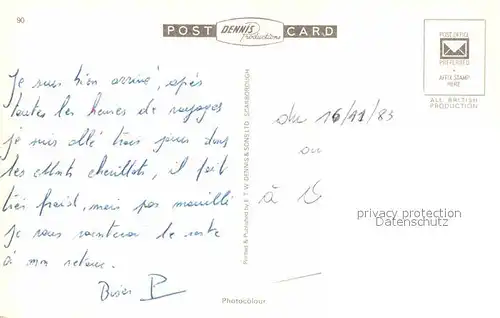 90
POST CARD
DENNIS
Productions
POST OFFICE
PREFERRED
AFFIX STAMP
HERE
ALL BRITISH
PRODUCTION
Je suis bien arrivé, après
toutes les heures de voyages
je suis allé trois jours dans
les il fait
très froid, mais pas mouillé
je vous raconterai le reste
à mon retour.
Bises P
Printed & Published by E. T. W. DENNIS & SONS LTD. SCARBOROUGH
Photocolour
du 16/11/83
au
à
privacy protection
Datenschutz